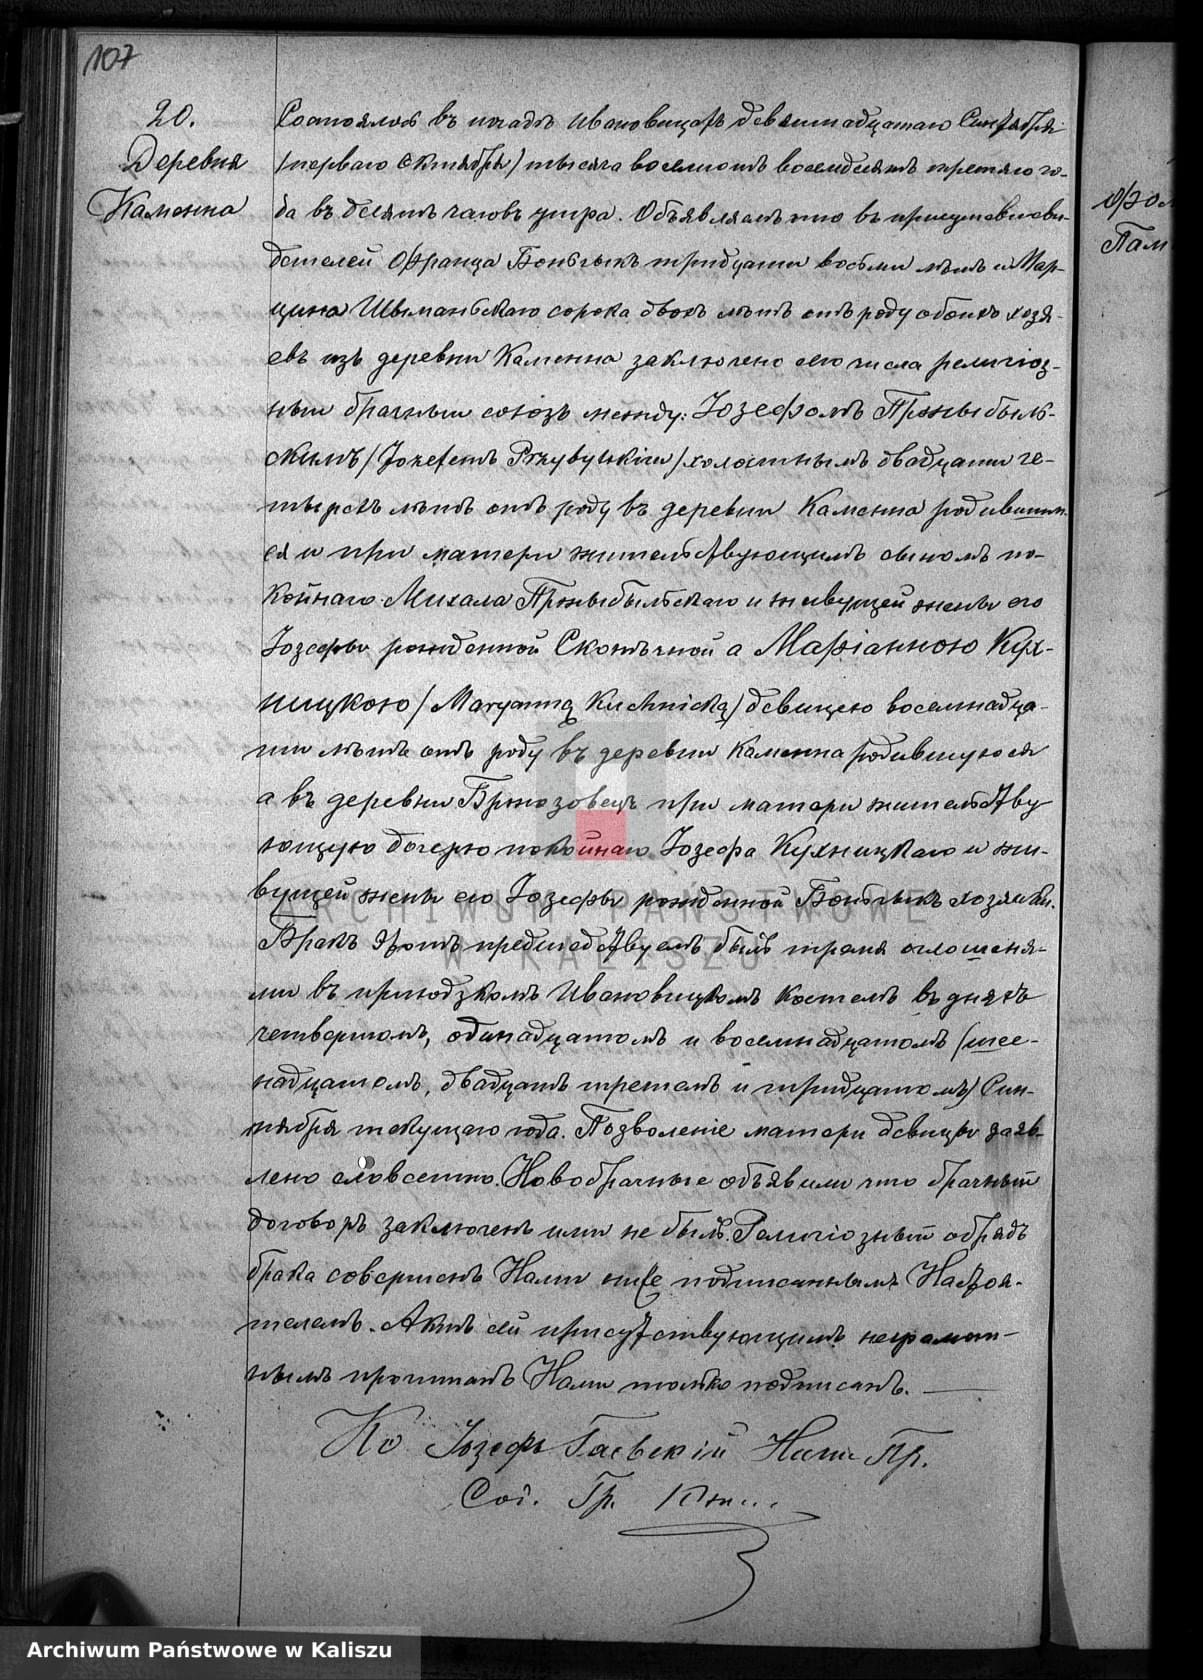 107
20.
Деревня
Каменна
Состоялось въ посадѣ Ивановицахъ девятнадцатаго Сентября
/перваго Октября/ тысяча восемьсотъ восемдесятъ третяго го-
да въ десять часовъ утра. Объявляемъ что въ присутствіи сви-
дѣтелей Франца Боньчыкъ тридцати восьми лѣтъ и Мар-
цина Шыманьскаго сорока двохъ лѣтъ отъ роду обоихъ хозя-
евъ изъ деревни Каменна заключено сего числа религіоз-
ный брачный союзъ между: Іозефомъ Пржыбыль-
скимъ /Jozefem Przybylskim/ холостымъ двадцати че-
тырехъ лѣтъ отъ роду въ деревни Каменна родившим-
ся и при матери жительствующимъ сыномъ по-
койнаго Михала Пржыбыльскаго и живущей жены его
Іозефы рожденной Скотѣчной а Маріанною Кух-
ницкою /Maryanną Kuchnicką/ девицею восемнадца-
ти лѣтъ отъ роду въ деревни Каменна родившуюся
а въ деревни при матери жительству-
ющую дочерю покойнаго Іозефа Кухницкаго и жи-
вущей жены его Іозефы рожденной Боньчыкъ хозяевъ.
Бракъ этотъ предшествуемъ былъ тремя оглошеня-
ми въ приходзкомъ Ивановицкомъ костелѣ въ дняхъ
четвертомъ, одинадцатомъ и восемнадцатомъ (шес-
надцатомъ, двадцать третемъ и тридцатомъ) Сен-
тября текущаго года. Позволеніе матери девицы заяв-
лено словестно. Новобрачные объявили что брачный
договоръ заключенъ ими не былъ. Религіозный обрядъ
брака совершенъ Нами ниже подписаннымъ Настоя-
телемъ. Актъ сей присутствующимъ неграмот-
нымъ прочитанъ Нами только подписанъ.
Кс Іозефъ Гаевскій Наст Пр.
Сод. Гр. Кн...
Фран
Пам
ARCHIWUM PAŃSTWOWE
W KALISZU
Archiwum Państwowe w Kaliszu